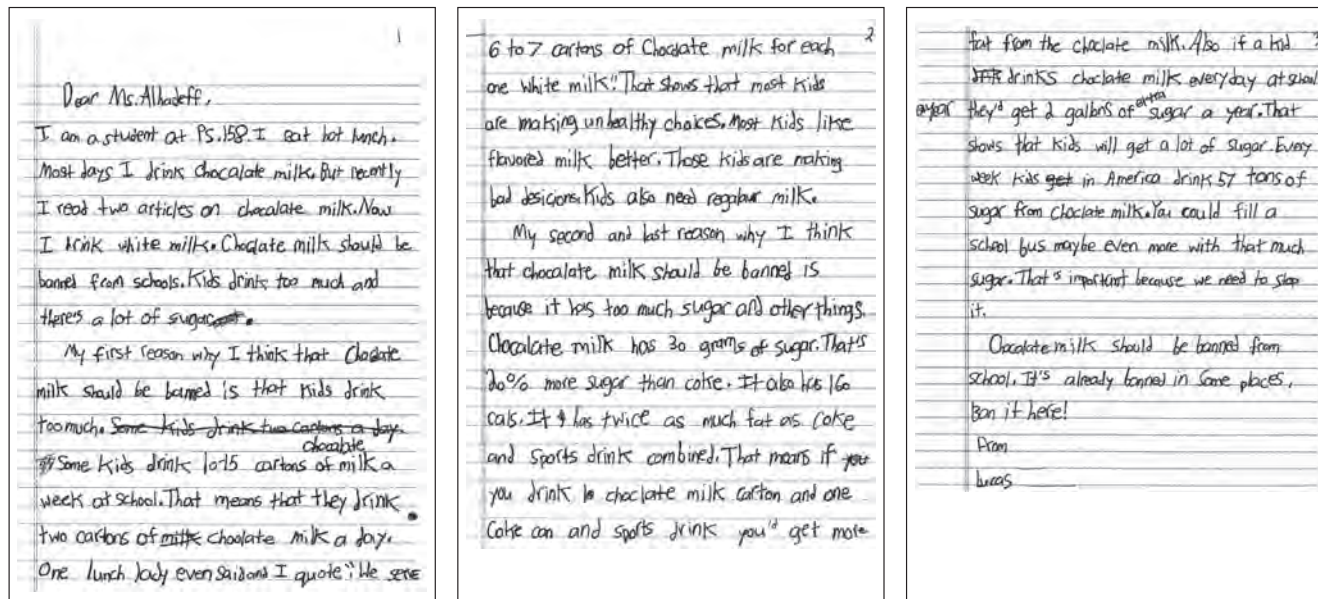 1
Dear Ms. Alhadeff,
I am a student at P.S. 158. I eat hot lunch.
Most days I drink chocalate milk. But recently
I read two articles on chocalate milk. Now
I drink white milk. Choclate milk should be
banned from schools. Kids drink too much and
there's a lot of sugar.
My first reason why I think that Choclate
milk should be banned is that kids drink
too much. Some kids drink two cartons a day.
chocalate
Some kids drink 10-15 cartons of milk a
week at school. That means that they drink
two cartons of milk choclate milk a day.
One lunch lady even said and I quote: "We serve
2
6 to 7 cartons of Choclate milk for each
one white milk". That shows that most kids
are making unhealthy choices. Most kids like
flavored milk better. Those kids are making
bad desicions. Kids also need regaluar milk.
My second and last reason why I think
that chocalate milk should be banned is
because it has too much sugar and other things.
Chocalate milk has 30 grams of sugar. That's
20% more sugar than coke. It also has 160
cals. It has twice as much fat as coke
and sports drink combined. That means if you
you drink 1 choclate milk carton and one
Coke can and sports drink you'd get more
3
fat from the choclate milk. Also if a kid
drinks choclate milk everyday at school
a year they'd get 2 gallons of extra sugar a year. That
shows that kids will get a lot of sugar. Every
week kids get in America drink 57 tons of
sugar from choclate milk. You could fill a
school bus maybe even more with that much
sugar. That's important because we need to stop
it.
Chocalate milk should be banned from
school. It's already banned in some places,
Ban it here!
From
Lucas